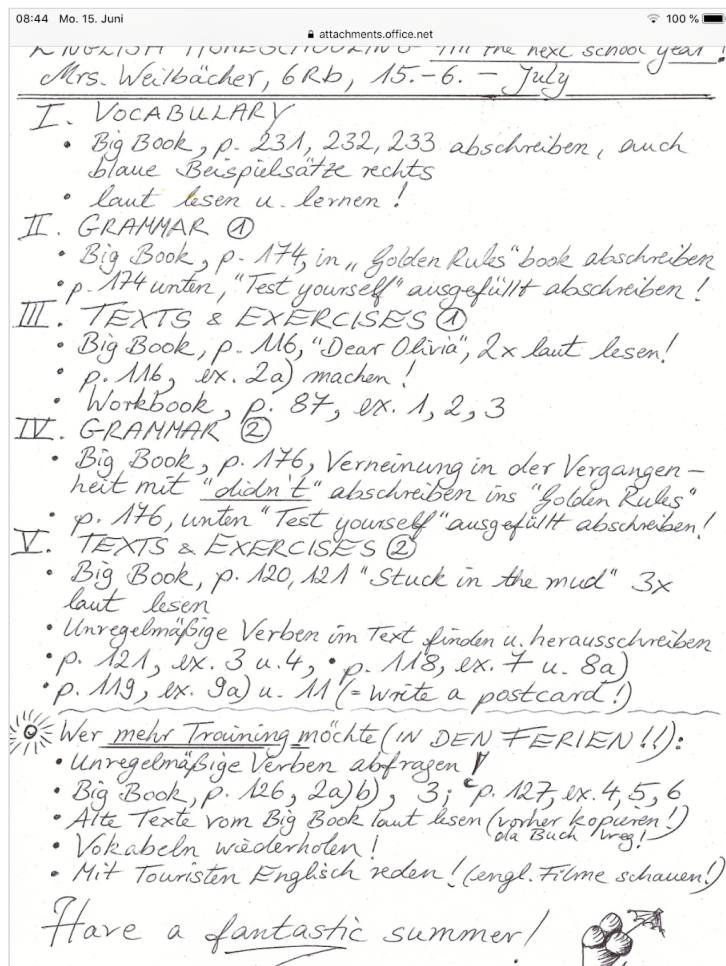 08:44 Mo. 15. Juni
100 %
attachments.office.net
ENGLISH HOMESCHOOLING till the next school year!
Mrs. Weilbächer, 6Rb, 15.-6. - July
I. VOCABULARY
• Big Book, p. 231, 232, 233 abschreiben, auch
blaue Beispielsätze rechts
• laut lesen u. lernen!
II. GRAMMAR ①
• Big Book, p. 174, in „Golden Rules" book abschreiben
• p. 174 unten, "Test yourself" ausgefüllt abschreiben!
III. TEXTS & EXERCISES ①
• Big Book, p. 116, "Dear Olivia", 2x laut lesen!
• p. 116, ex. 2a) machen!
• Workbook, p. 87, ex. 1, 2, 3
IV. GRAMMAR ②
• Big Book, p. 176, Verneinung in der Vergangen-
heit mit "didn't" abschreiben ins "Golden Rules"
• p. 176, unten "Test yourself" ausgefüllt abschreiben!
V. TEXTS & EXERCISES ②
• Big Book, p. 120, 121 "Stuck in the mud" 3x
laut lesen
• Unregelmäßige Verben im Text finden u. herausschreiben
• p. 121, ex. 3 u. 4, • p. 118, ex. 7 u. 8a)
• p. 119, ex. 9a) u. 11 (= write a postcard!)
Wer mehr Training möchte (IN DEN FERIEN!!):
• Unregelmäßige Verben abfragen!
• Big Book, p. 126, 2a)b), 3; p. 127, ex. 4, 5, 6
• Alte Texte vom Big Book laut lesen (vorher kopieren!)
da Buch weg!
• Vokabeln wiederholen!
• Mit Touristen Englisch reden! (engl. Filme schauen!)
Have a fantastic summer!